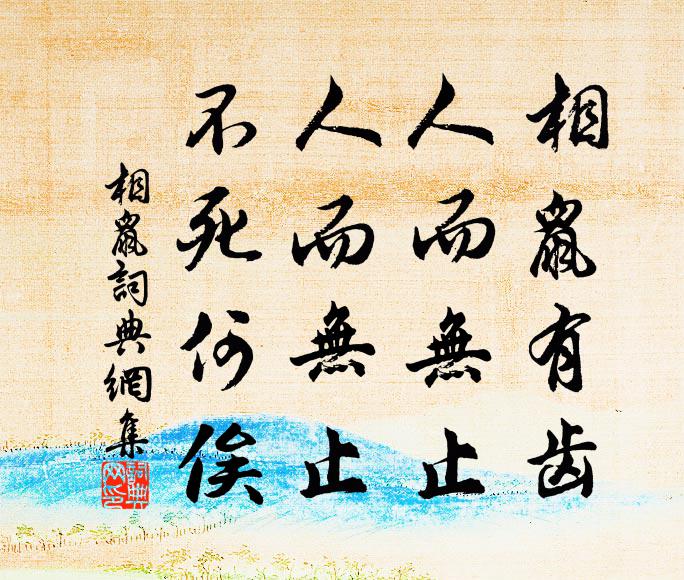 相鼠有齿
人而無止
人而無止
不死何俟
相鼠詞典網集